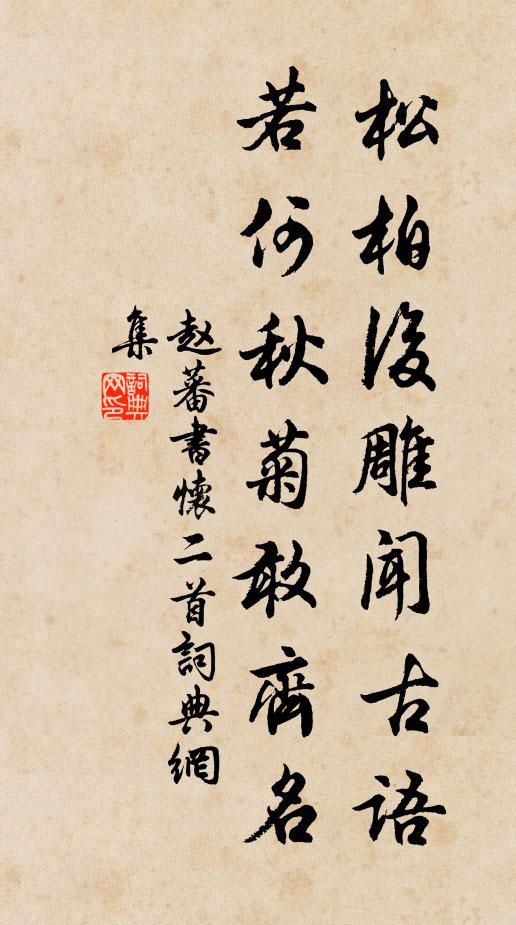 松柏後雕聞古語
若何秋菊敢齊名
赵蕃書懷二首詞典網
集
詞典
网印